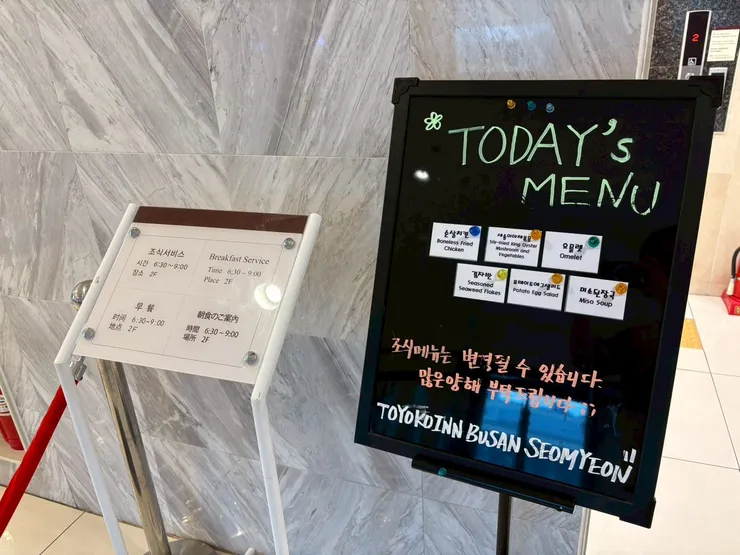 조식서비스
시간 6:30~9:00
장소 2F
Breakfast Service
Time 6:30~9:00
Place 2F
早餐
时间 6:30~9:00
地点 2F
朝食のご案内
時間 6:30~9:00
場所 2F
TODAY's
MENU
순살치킨
Boneless Fried
Chicken
Stir-fried King Oyster
Mushroom and
Vegetables
오믈렛
Omelet
김자반
Seasoned
Seaweed Flakes
포테이토에그샐러드
Potato Egg Salad
미소된장국
Miso Soup
조식메뉴는 변경될 수 있습니다
많은양해 부탁드립니다 :)
TOYOKOINN BUSAN SEOMYEON
2